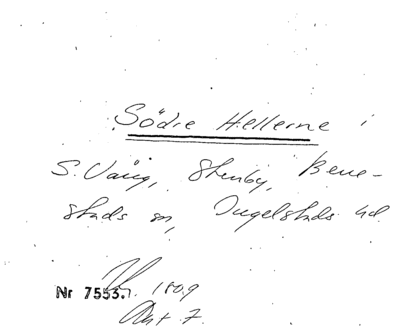 Södre Hellerne i
S. Vång, Stenby, Bene-
stads sn, Ingelstads hd.
Nr 7553.